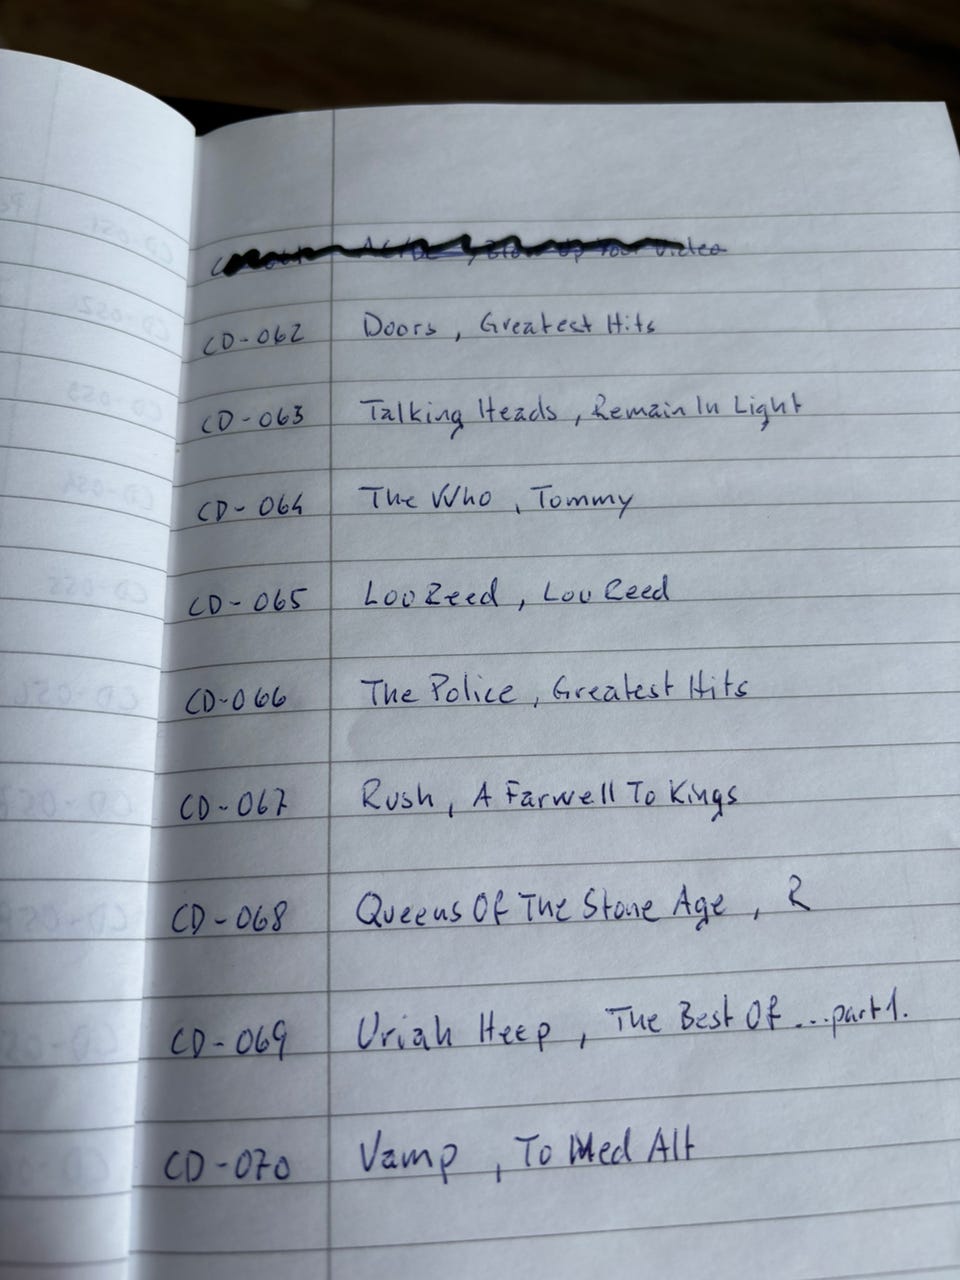 Video
CD-062 Doors, Greatest Hits
CD-063 Talking Heads, Remain In Light
CD-064 The Who, Tommy
CD-065 Lou Reed, Lou Reed
CD-066 The Police, Greatest Hits
CD-067 Rush, A Farwell To Kings
CD-068 Queens Of The Stone Age, R
CD-069 Uriah Heep, The Best Of ... part 1.
CD-070 Vamp, To Med Alt